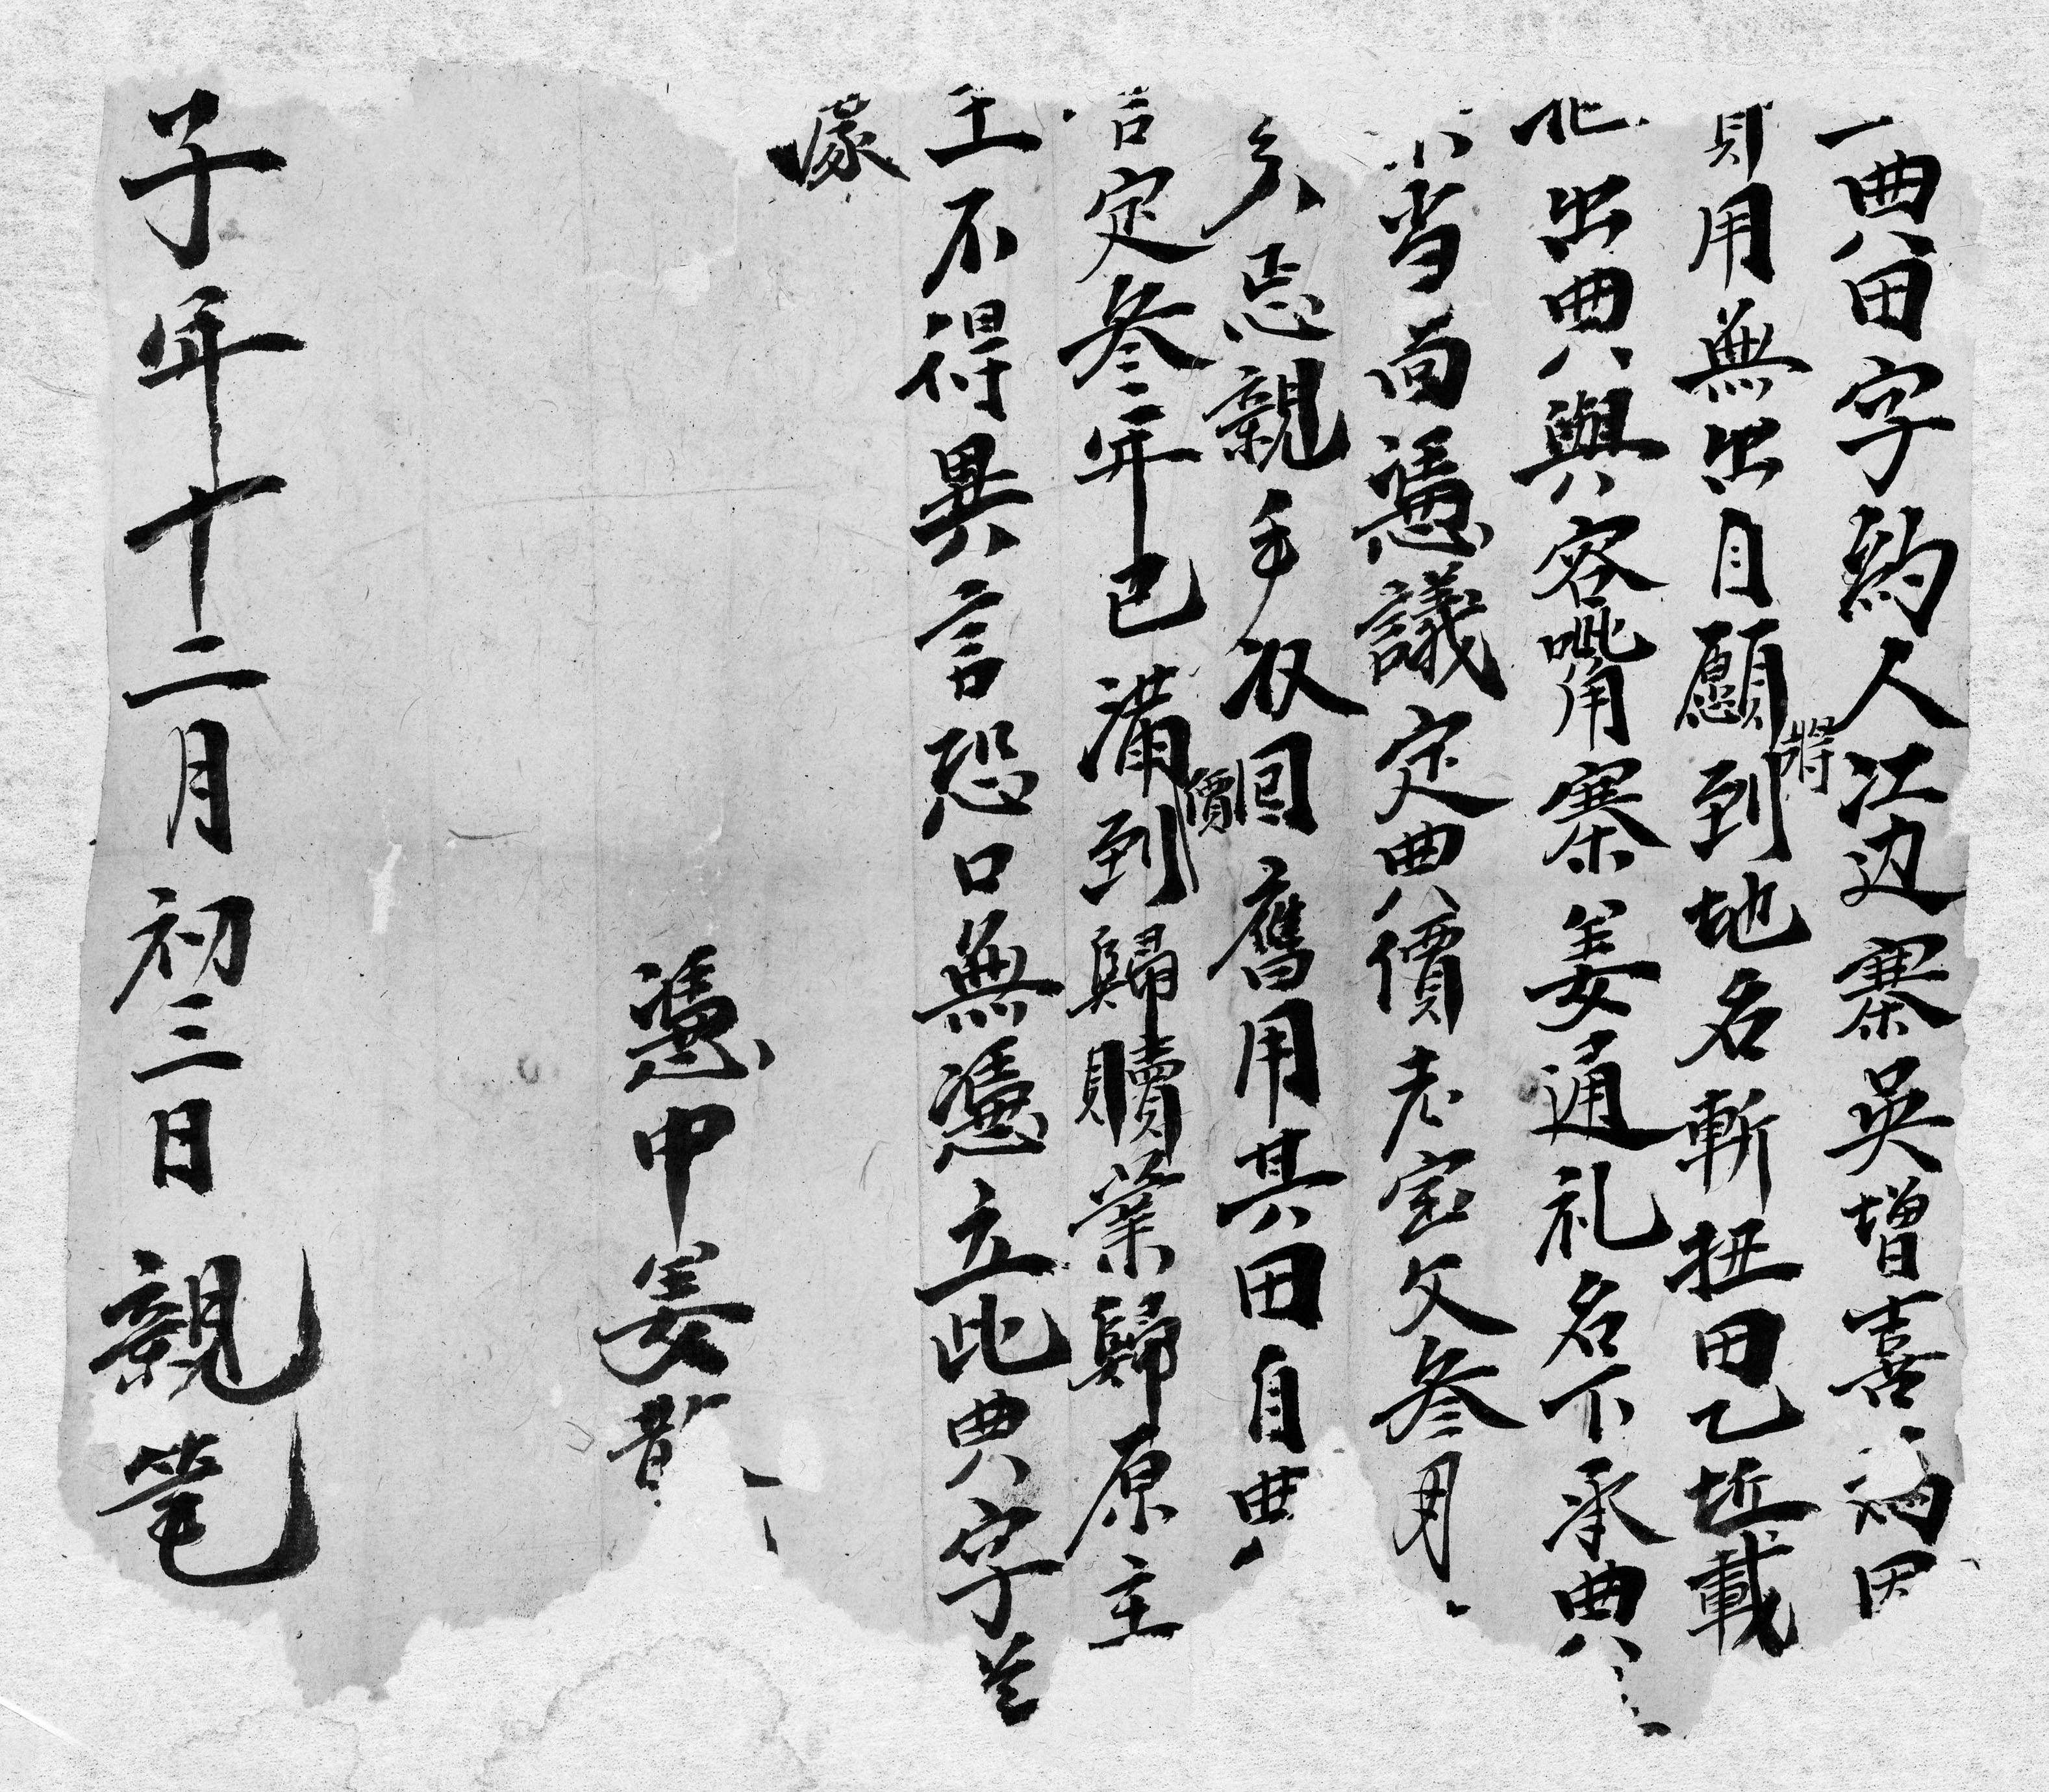 典田字約人江边寨吳增喜為因
用無出自願將到地名斬扭田乙坵載
出典與容嘴角寨姜通礼名下承典
當面憑議定典價老宝文叁
忘親手收回舊用其田自典
言定叁年已滿價到歸贖業歸原主
主不得異言恐口無憑立此典字為
據
憑中姜
子年十二月初三日親筆